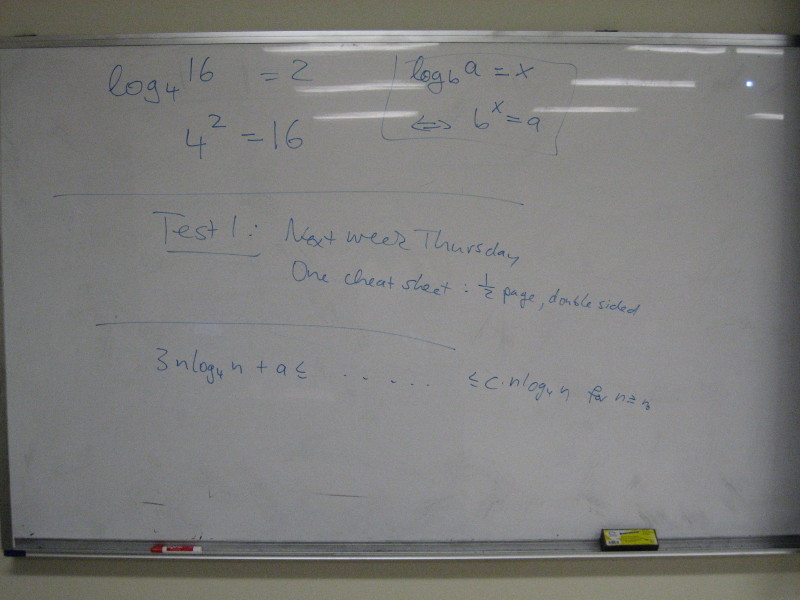 log₄16 = 2
4² = 16
log_b a = x
⇔ b^x = a
Test 1: Next week Thursday
One cheat sheet: ½ page, double sided
3 n log₄ n + a ≤ . . . . . . ≤ c · n log₄ n for n ≥ n₀